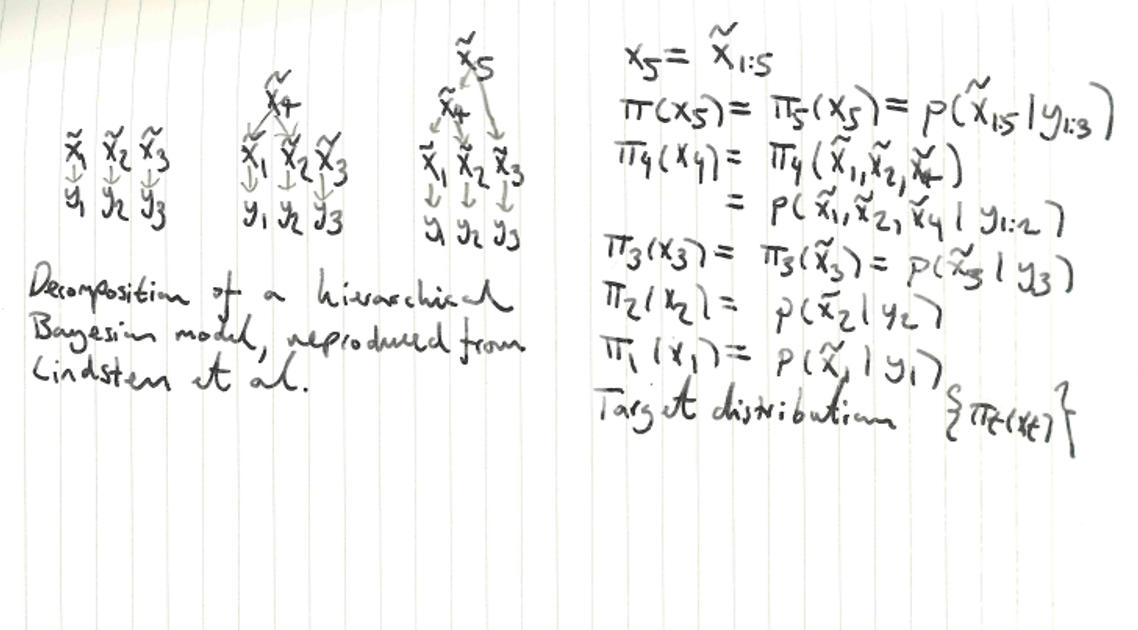 x̃₅
x̃₄ x̃₄
x̃₁ x̃₂ x̃₃ x̃₁ x̃₂ x̃₃ x̃₁ x̃₂ x̃₃
y₁ y₂ y₃ y₁ y₂ y₃ y₁ y₂ y₃
Decomposition of a hierarchical
Bayesian model, reproduced from
Lindsten et al.
x₅ = x̃₁:₅
π(x₅) = π₅(x₅) = p(x̃₁:₅ | y₁:₃)
π₄(x₄) = π₄(x̃₁, x̃₂, x̃₄)
= p(x̃₁, x̃₂, x̃₄ | y₁:₂)
π₃(x₃) = π₃(x̃₃) = p(x̃₃ | y₃)
π₂(x₂) = p(x̃₂ | y₂)
π₁(x₁) = p(x̃₁ | y₁)
Target distribution {πt(xt)}